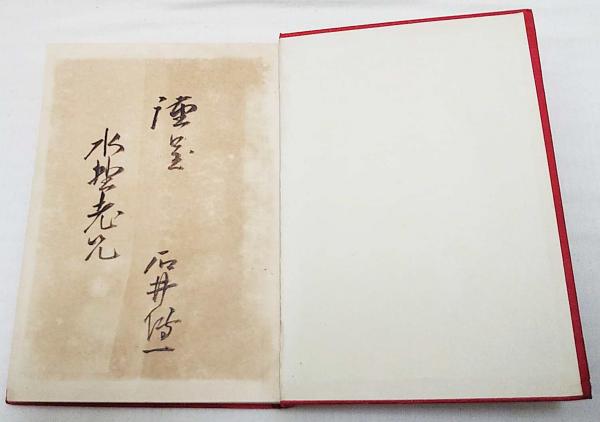 謹呈
石井傳一
水野老兄